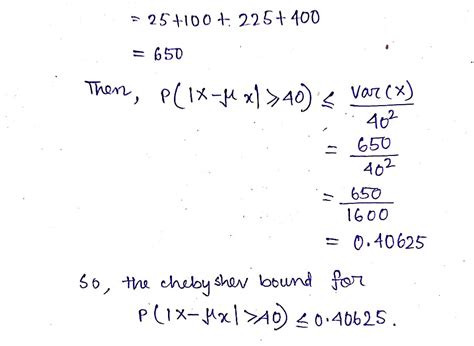 = 25+100+225+400
= 650
Then, P(|X-μx|⩾40) ≤ Var(X)/40²
= 650/40²
= 650/1600
= 0.40625
So, the chebyshev bound for
P(|X-μx|>40) ≤ 0.40625.